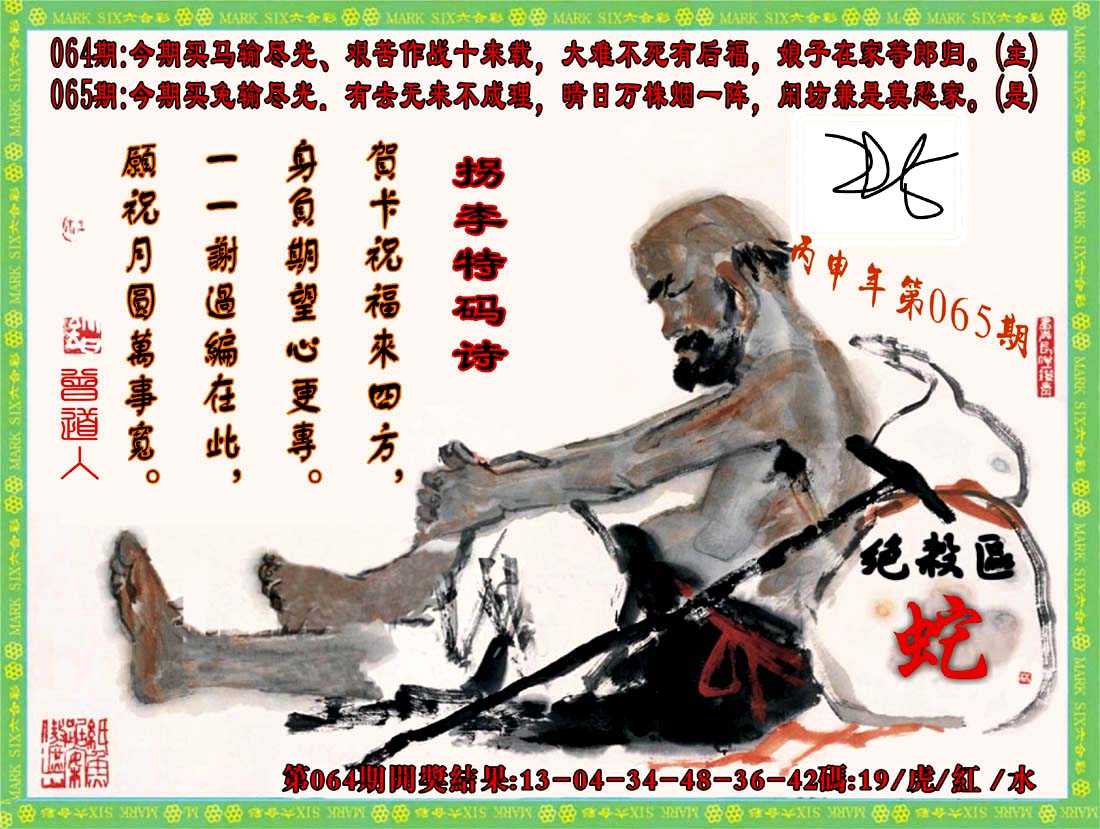 MARK SIX六合彩
064期:今期买马输尽光、艰苦作战十来载,大难不死有后福,娘子在家等郎归。(主)
065期:今期买兔输尽光.有去无来不成理,晴日万株烟一阵,闲坊兼是莫愁家。(是)
丙申年第065期
拐李特码诗
賀卡祝福來四方,
身負期望心更專。
一一謝過編在此,
願祝月圓萬事寬。
曾道人
绝殺區
蛇
第064期開獎結果:13-04-34-48-36-42碼:19/虎/紅 /水